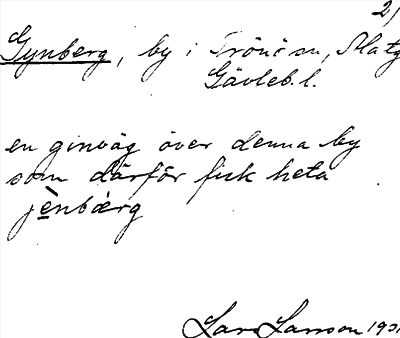 2)
Gynberg, by i Trönö sn,
Gävleb. l.
en ginväg över denna by
som därför fick heta
jènbærg
Lars Larsson